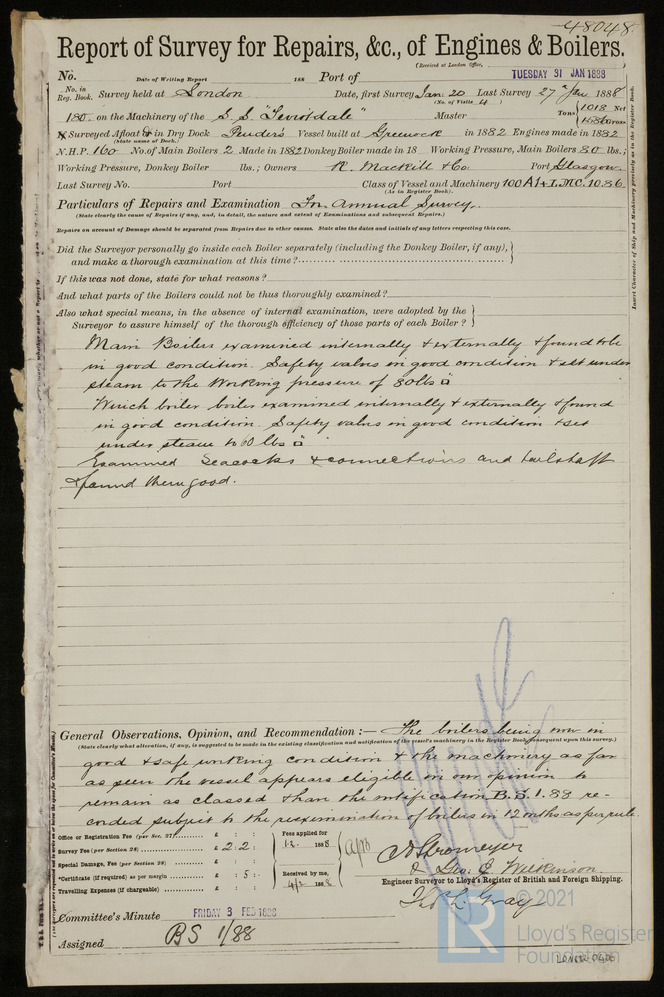 48048
Report of Survey for Repairs, &c., of Engines & Boilers.
(Received at London Office,
No. Date of Writing Report 188 Port of TUESDAY 31 JAN 1888
No. in Reg. Book. Survey held at London Date, first Survey Jan: 20 Last Survey 27th Jan 1888
(No. of Visits 4)
180. on the Machinery of the S.S. "Teviotdale" Master Tons 1013 Net
Surveyed Afloat & in Dry Dock Vessel built at Greenock in 1882 Engines made in 1882
(State name of Dock.)
N.H.P. 160 No. of Main Boilers 2 Made in 1882 Donkey Boiler made in 18 Working Pressure, Main Boilers 80 lbs;
Working Pressure, Donkey Boiler lbs.; Owners R. Mackill & Co. Port Glasgow.
Last Survey No. Port Class of Vessel and Machinery 100A1 & L.M.C. 10.86.
(As in Register Book).
Particulars of Repairs and Examination For Annual Survey.
(State clearly the cause of Repairs if any, and, in detail, the nature and extent of Examinations and subsequent Repairs.)
Repairs on account of Damage should be separated from Repairs due to other causes. State also the dates and initials of any letters respecting this case.
Did the Surveyor personally go inside each Boiler separately (including the Donkey Boiler, if any),
and make a thorough examination at this time?
If this was not done, state for what reasons?
And what parts of the Boilers could not be thus thoroughly examined?
Also what special means, in the absence of internal examination, were adopted by the
Surveyor to assure himself of the thorough efficiency of those parts of each Boiler?
Main Boilers examined internally & externally & found to be
in good condition. Safety valves in good condition & set under
steam to the Working pressure of 80 lbs □
Winch boiler boiler examined internally & externally & found
in good condition. Safety valves in good condition & set
under steam to 60 lbs □
Examined Seacocks & connections and tailshaft
& found them good.
General Observations, Opinion, and Recommendation :— The boilers being now in
(State clearly what alteration, if any, is suggested to be made in the existing classification and notification of the vessel's machinery in the Register Book, consequent upon this survey.)
good & safe working condition & the machinery as far
as seen the vessel appears eligible in our opinion to
remain as classed & han the notification B.S. 1.88 re-
corded subject to the reexamination of boilers in 12 months as per rule.
Office or Registration Fee (per Sec. 27) £ : :
Survey Fee (per Section 28) £ 2 : 2 :
Special Damage, Fee (per Section 29) £ : :
*Certificate (if required) as per margin £ : 5 :
Travelling Expenses (if chargeable) £ : :
Fees applied for
1.2. 1888
Received by me,
4/2 1888
& Geo. J. Wilkinson
Engineer Surveyor to Lloyd's Register of British and Foreign Shipping.
Gray
Committee's Minute FRIDAY 3 FEB 1888
Assigned BS 1/88
Insert Character of Ship and Machinery precisely as in the Register Book.
© 2021
LR
Lloyd's Register
Foundation